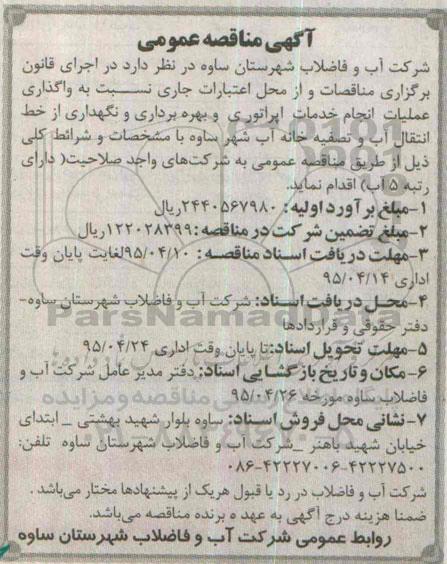 آگهی مناقصه عمومی
شرکت آب و فاضلاب شهرستان ساوه در نظر دارد در اجرای قانون
برگزاری مناقصات و از محل اعتبارات جاری نسبت به واگذاری
عملیات انجام خدمات اپراتوری و بهره برداری و نگهداری از خط
انتقال آب و تصفیه خانه آب شهر ساوه با مشخصات و شرائط کلی
ذیل از طریق مناقصه عمومی به شرکت‌های واجد صلاحیت( دارای
رتبه ۵ آب) اقدام نماید.
۱-مبلغ برآورد اولیه: ۲۴۴۰۵۶۷۹۸۰ریال
۲-مبلغ تضمین شرکت در مناقصه:۱۲۲۰۲۸۳۹۹ریال
۳-مهلت دریافت اسناد مناقصه: ۹۵/۰۴/۱۰لغایت پایان وقت
اداری ۹۵/۰۴/۱۴
۴-محل دریافت اسناد: شرکت آب و فاضلاب شهرستان ساوه-
دفتر حقوقی و قراردادها
ParsNamadData
۵-مهلت تحویل اسناد:تا پایان وقت اداری ۹۵/۰۴/۲۴
۶-مکان و تاریخ بازگشایی اسناد: دفتر مدیر عامل شرکت آب و
فاضلاب ساوه مورخه ۹۵/۰۴/۲۶
۷-نشانی محل فروش اسناد: ساوه بلوار شهید بهشتی _ ابتدای
خیابان شهید باهنر _شرکت آب و فاضلاب شهرستان ساوه تلفن:
۰۸۶-۴۲۲۲۷۰۰۶-۴۲۲۲۷۵۰۰
شرکت آب و فاضلاب در رد یا قبول هریک از پیشنهادها مختار می‌باشد.
ضمنا هزینه درج آگهی به عهد ه برنده مناقصه می‌باشد.
روابط عمومی شرکت آب و فاضلاب شهرستان ساوه